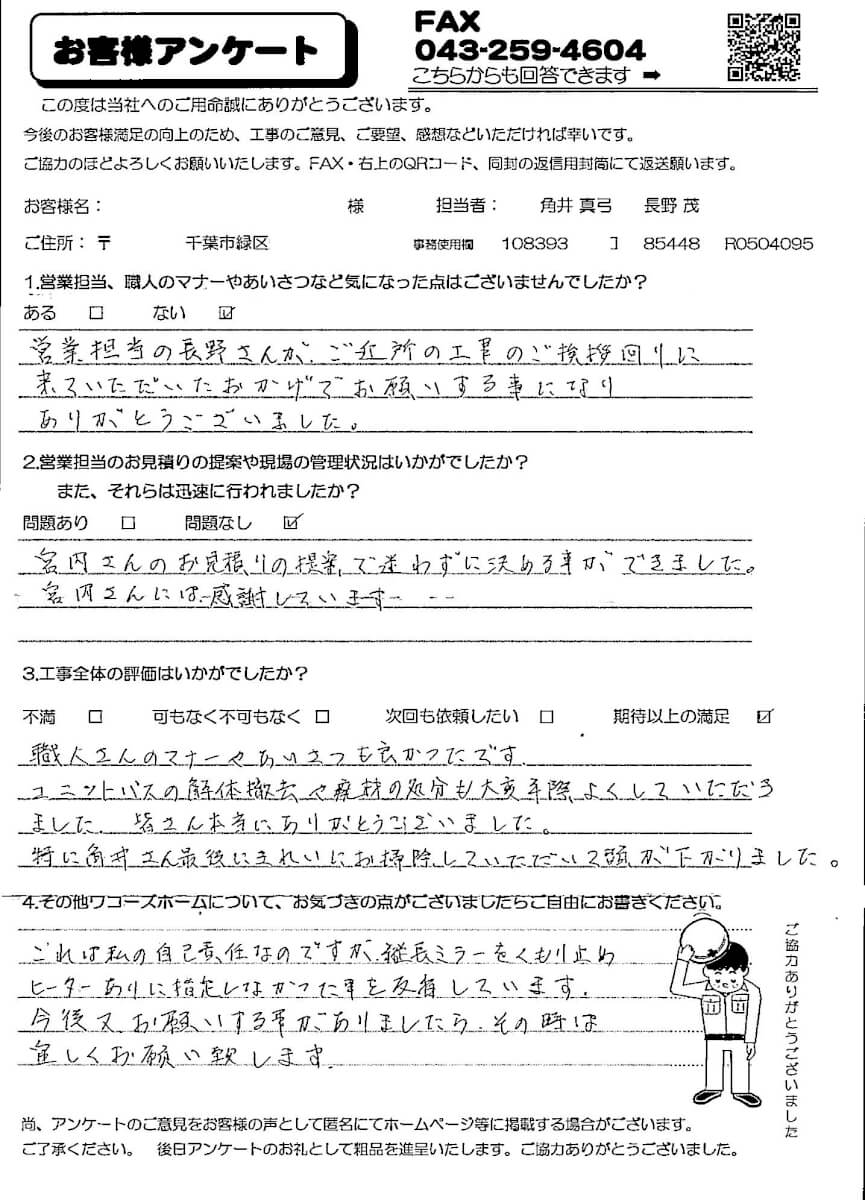 お客様アンケート
FAX
043-259-4604
こちらからも回答できます ➡
この度は当社へのご用命誠にありがとうございます。
今後のお客様満足の向上のため、工事のご意見、ご要望、感想などいただければ幸いです。
ご協力のほどよろしくお願いいたします。FAX・右上のQRコード、同封の返信用封筒にて返送願います。
お客様名： 様 担当者： 角井 真弓 長野 茂
ご住所：〒 千葉市緑区 事務使用欄 108393 コ 85448 R0504095
1.営業担当、職人のマナーやあいさつなど気になった点はございませんでしたか？
ある □ ない ☑
営業担当の長野さんが、ご近所の工事のご挨拶回りに
来ていただいたおかげでお願いする事になり
ありがとうございました。
2.営業担当のお見積りの提案や現場の管理状況はいかがでしたか？
また、それらは迅速に行われましたか？
問題あり □ 問題なし ☑
宮内さんのお見積りの提案で迷わずに決める事ができました。
宮内さんには感謝しています
3.工事全体の評価はいかがでしたか？
不満 □ 可もなく不可もなく □ 次回も依頼したい □ 期待以上の満足 ☑
職人さんのマナーやあいさつも良かったです.
ユニットバスの解体撤去や廃材の処分も大変手際よくしていただき
ました. 皆さん本当にありがとうございました。
特に角井さん最後にきれいにお掃除していただいて頭が下がりました。
4.その他ワコーズホームについて、お気づきの点がございましたらご自由にお書きください。
これは私の自己責任なのですが、縦長ミラーをくもり止め
ヒーターありに指定しなかった事を反省しています.
今後又お願いする事がありましたら、その時は
宜しくお願い致します.
ご協力ありがとうございました
尚、アンケートのご意見をお客様の声として匿名にてホームページ等に掲載する場合がございます。
ご了承ください。 後日アンケートのお礼として粗品を進呈いたします。ご協力ありがとうございました。